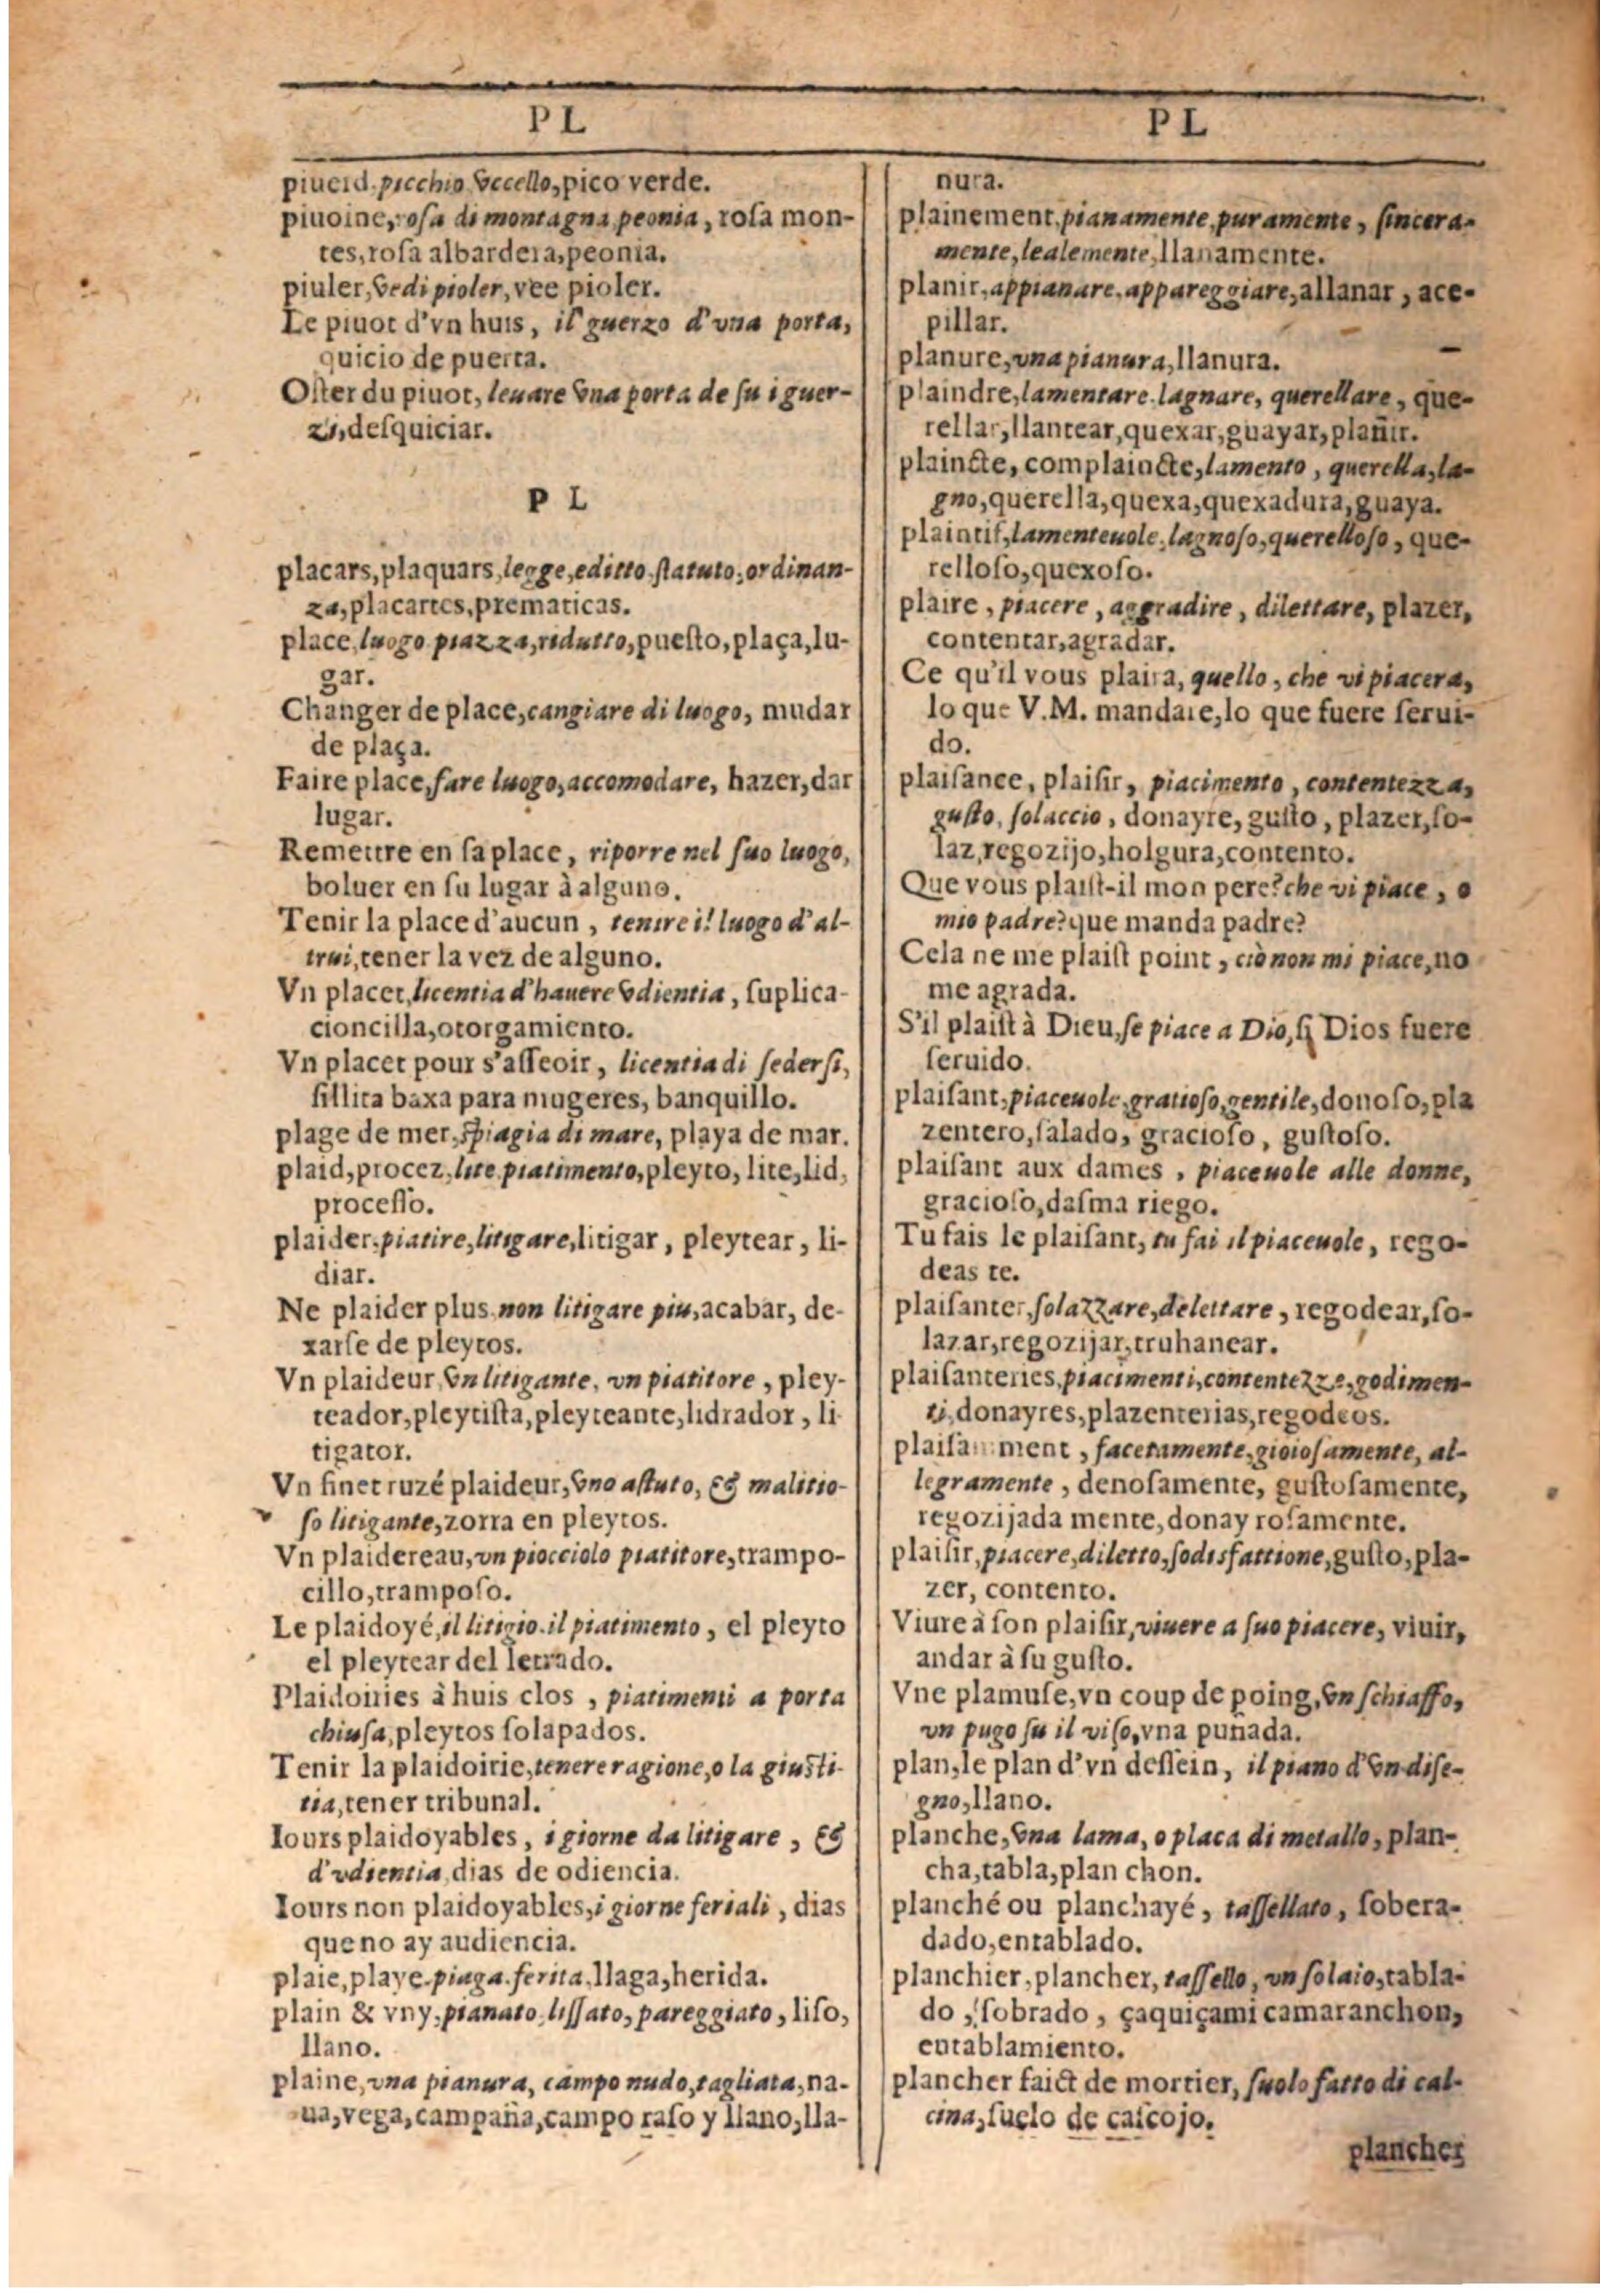 PL
PL
piuerd, picchio vccello, pico verde.
piuoine, rosa di montagna, peonia, rosa mon-
tes, rosa albardera, peonia.
piuler, vedi pioler, vee pioler.
Le piuot d'vn huis, il guerzo d'vna porta,
quicio de puerta.
Oster du piuot, leuare vna porta de su i guer-
zi, desquiciar.
PL
placars, plaquars, legge, editto, statuto, ordinan-
za, placartes, prematicas.
place, luogo, piazza, ridutto, puesto, plaça, lu-
gar.
Changer de place, cangiare di luogo, mudar
de plaça.
Faire place, fare luogo, accomodare, hazer, dar
lugar.
Remettre en sa place, riporre nel suo luogo,
boluer en su lugar à alguno.
Tenir la place d'aucun, tenire il luogo d'al-
trui, tener la vez de alguno.
Vn placet, licentia d'hauere vdientia, suplica-
cioncilla, otorgamiento.
Vn placet pour s'asseoir, licentia di sedersi,
sillita baxa para mugeres, banquillo.
plage de mer, spiagia di mare, playa de mar.
plaid, procez, lite, piatimento, pleyto, lite, lid,
processo.
plaider, piatire, litigare, litigar, pleytear, li-
diar.
Ne plaider plus, non litigare piu, acabar, de-
xarse de pleytos.
Vn plaideur, vn litigante, vn piatitore, pley-
teador, pleytista, pleyteante, lidrador, li
tigator.
Vn finet ruzé plaideur, vno astuto, & malitio-
so litigante, zorra en pleytos.
Vn plaidereau, vn piocciolo piatitore, trampo-
cillo, tramposo.
Le plaidoyé, il litigio, il piatimento, el pleyto
el pleytear del letrado.
Plaidoiries à huis clos, piatimenti a porta
chiusa, pleytos solapados.
Tenir la plaidoirie, tenere ragione, o la giusti-
tia, tener tribunal.
Iours plaidoyables, i giorne da litigare, &
d'vdientia, dias de odiencia.
Iours non plaidoyables, i giorne feriali, dias
que no ay audiencia.
plaie, playe, piaga, ferita, llaga, herida.
plain & vny, pianato, lissato, pareggiato, liso,
llano.
plaine, vna pianura, campo nudo, tagliata, na-
ua, vega, campaña, campo raso y llano, lla-
nura.
plainement, pianamente, puramente, sincera-
mente, lealemente, llanamente.
planir, appianare, appareggiare, allanar, ace-
pillar.
planure, vna pianura, llanura.
plaindre, lamentare, lagnare, querellare, que-
rellar, llantear, quexar, guayar, plañir.
plaincte, complaincte, lamento, querella, la-
gno, querella, quexa, quexadura, guaya.
plaintif, lamenteuole, lagnoso, querelloso, que-
relloso, quexoso.
plaire, piacere, aggradire, dilettare, plazer,
contentar, agradar.
Ce qu'il vous plaira, quello, che vi piacera,
lo que V.M. mandare, lo que fuere serui-
do.
plaisance, plaisir, piacimento, contentezza,
gusto, solaccio, donayre, gusto, plazer, so-
laz, regozijo, holgura, contento.
Que vous plaist-il mon pere? che vi piace, o
mio padre? que manda padre?
Cela ne me plaist point, ciò non mi piace, no
me agrada.
S'il plaist à Dieu, se piace a Dio, si Dios fuere
seruido.
plaisant, piaceuole, gratioso, gentile, donoso, pla
zentero, salado, gracioso, gustoso.
plaisant aux dames, piaceuole alle donne,
gracioso, dasma riego.
Tu fais le plaisant, tu fai il piaceuole, rego-
deas te.
plaisanter, solazzare, delettare, regodear, so-
lazar, regozijar, truhanear.
plaisanteries, piacimenti, contentezze, godimen-
ti, donayres, plazenterias, regodeos.
plaisamment, facetamente, gioiosamente, al-
legramente, denosamente, gustosamente,
regozijada mente, donay rosamente.
plaisir, piacere, diletto, sodisfattione, gusto, pla-
zer, contento.
Viure à son plaisir, viuere a suo piacere, viuir,
andar à su gusto.
Vne plamuse, vn coup de poing, vn schiaffo,
vn pugo su il viso, vna puñada.
plan, le plan d'vn dessein, il piano d'vn dise-
gno, llano.
planche, vna lama, o placa di metallo, plan-
cha, tabla, plan chon.
planché ou planchayé, tassellato, sobera-
dado, entablado.
planchier, plancher, tassello, vn solaio, tabla-
do, sobrado, çaquiçami camaranchon,
entablamiento.
plancher faict de mortier, suolo fatto di cal-
cina, suelo de cascojo.
plancher